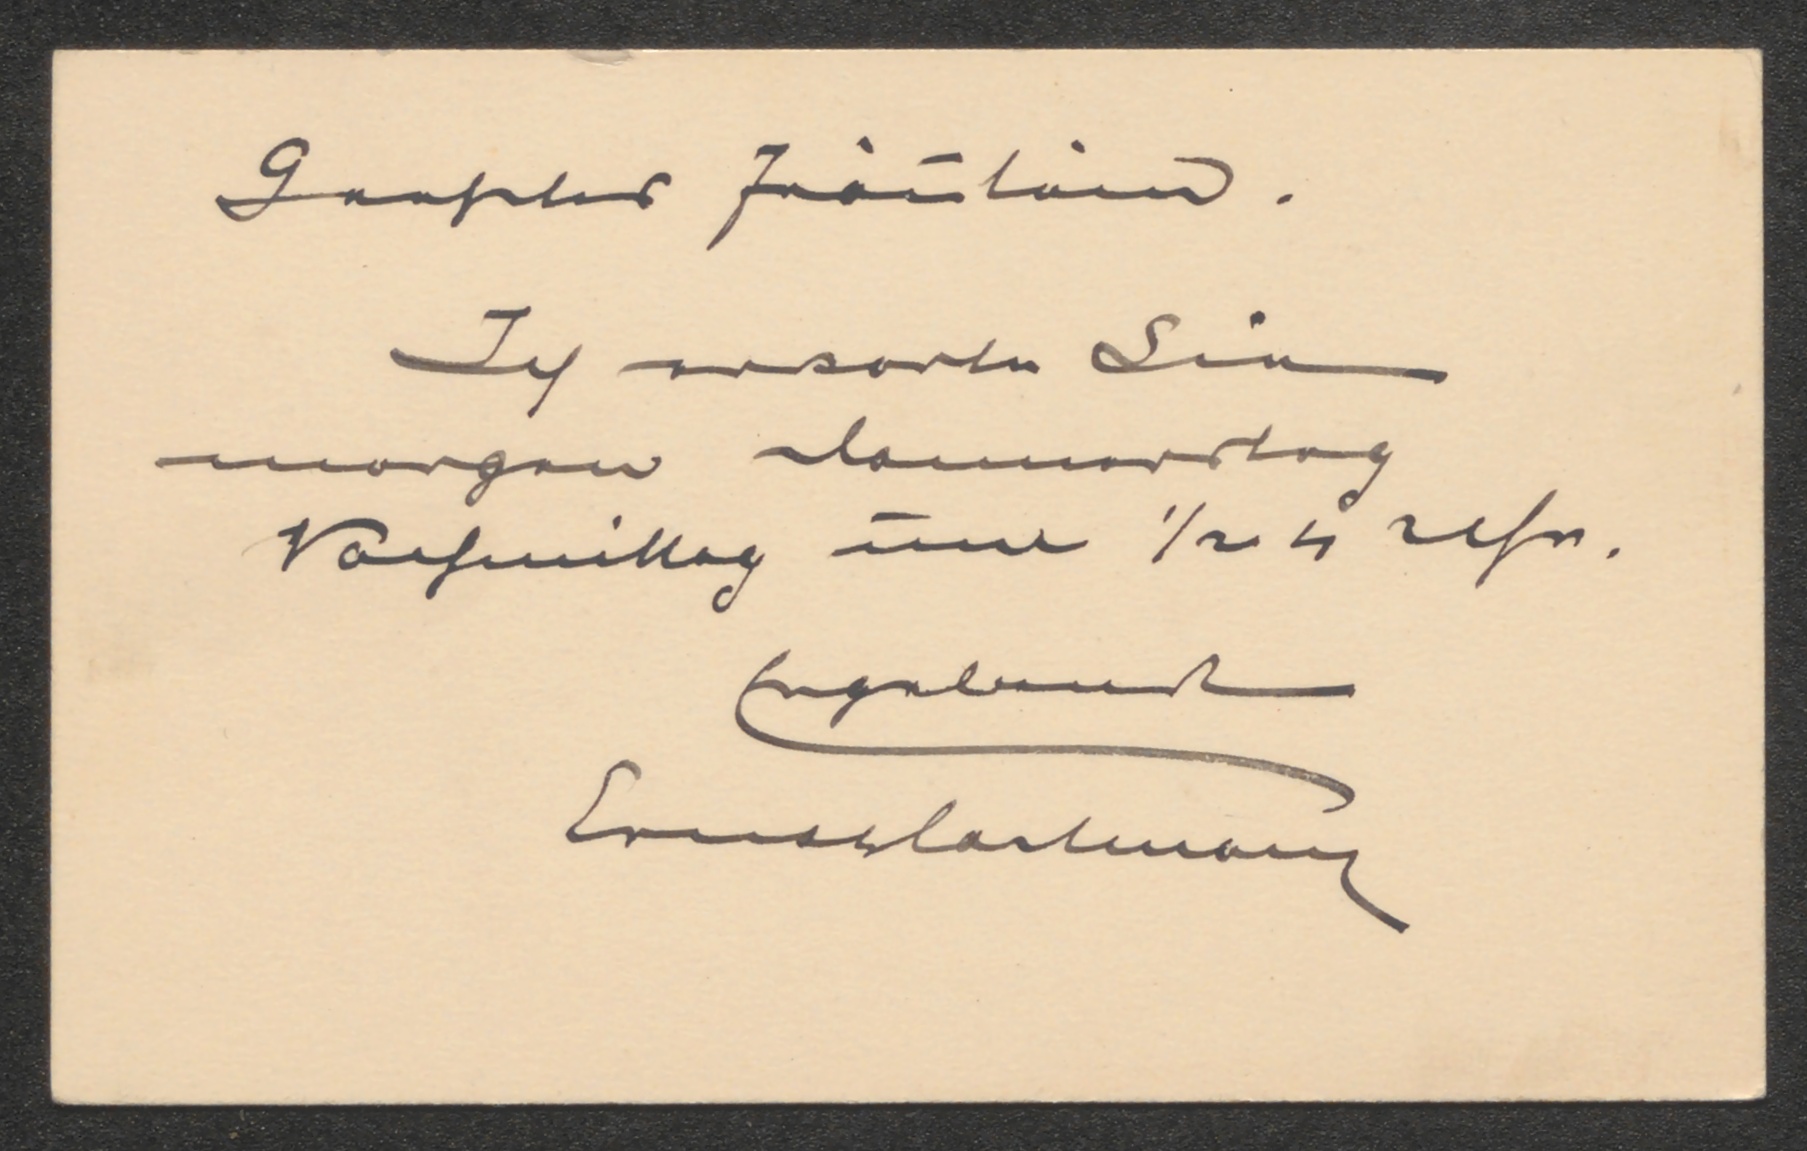 Geehrtes Fräulein.
Ich erwarte Sie
morgen Donnerstag
Nachmittag um 1/2 4 Uhr.
Ergebenst
Ernst Hartmann